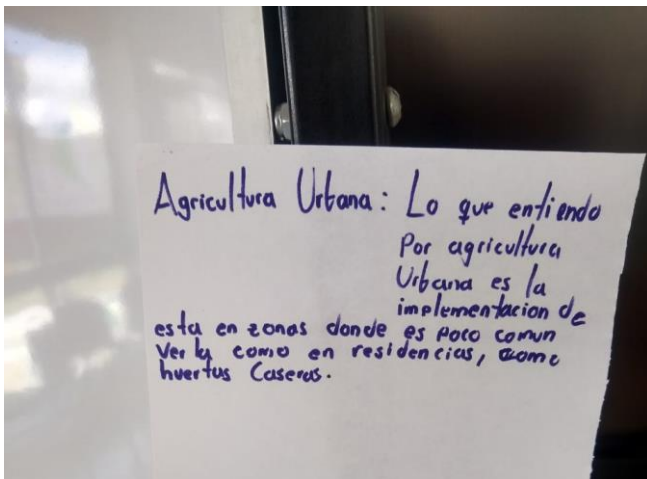 Agricultura Urbana: Lo que entiendo
Por agricultura
Urbana es la
implementacion de
esta en zonas donde es poco comun
Verla como en residencias, como
huertas Caseras.